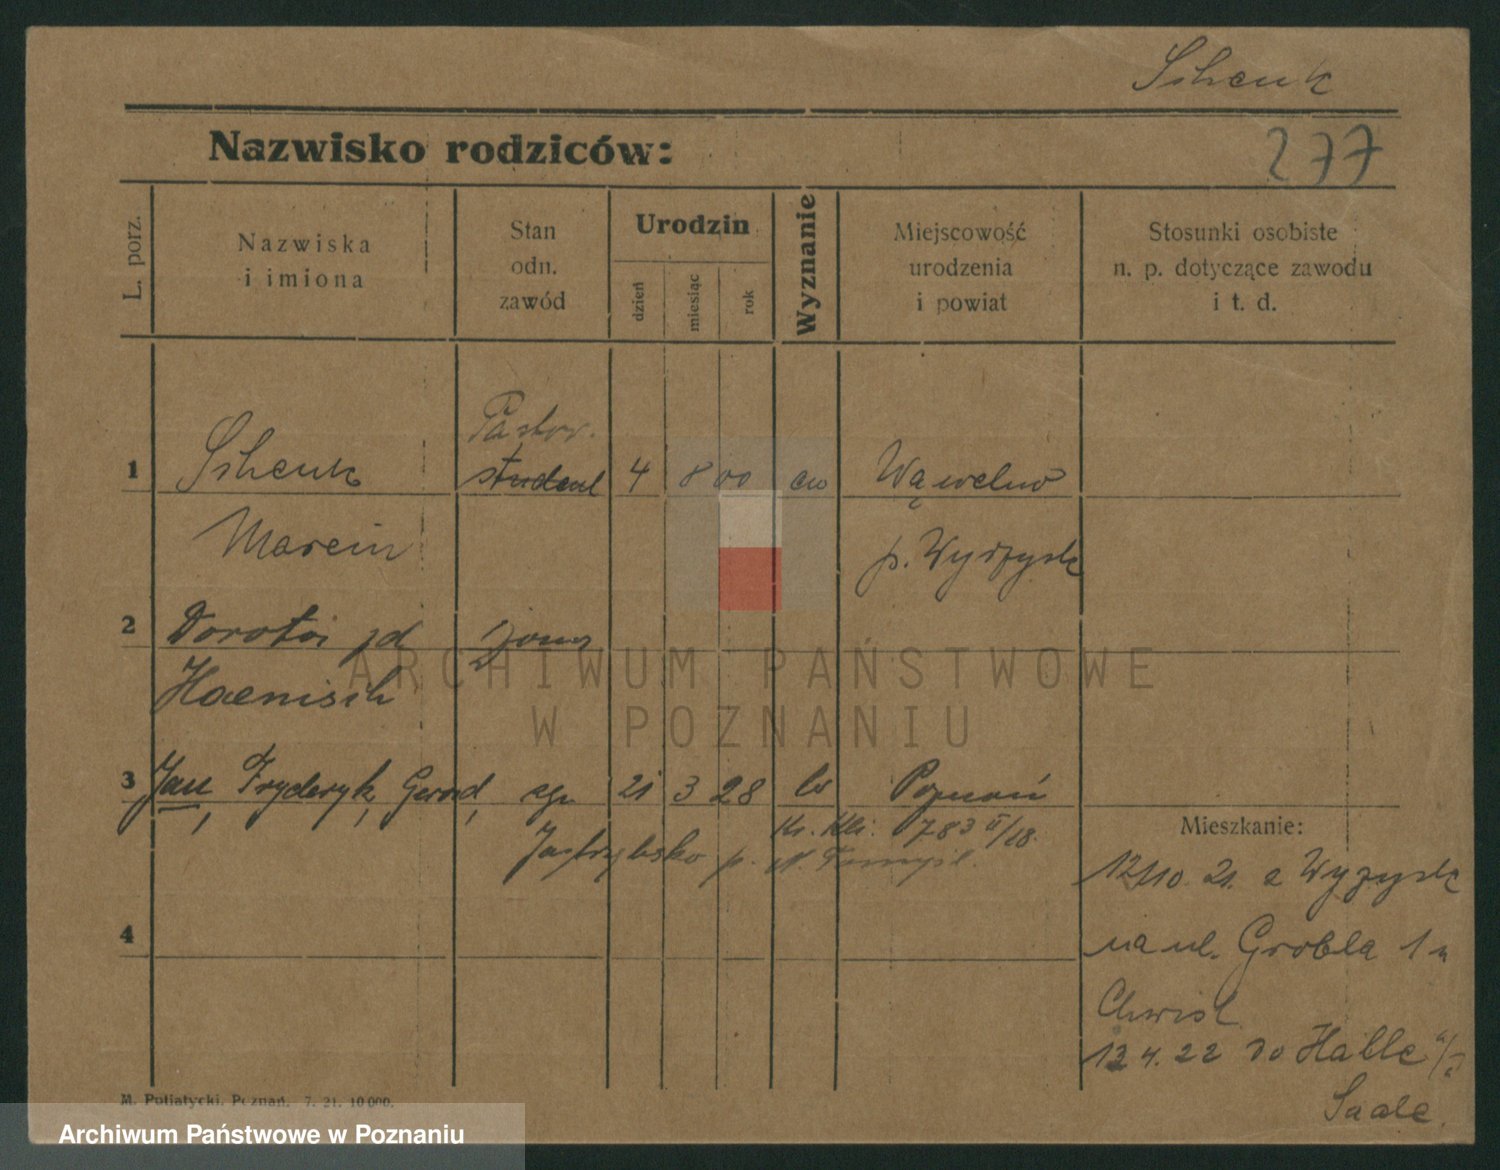 Schenk
Nazwisko rodziców:
277
L. porz.
Nazwiska
i imiona
Stan
odn.
zawód
Urodzin
dzień
miesiąc
rok
Wyznanie
Miejscowość
urodzenia
i powiat
Stosunki osobiste
n. p. dotyczące zawodu
i t. d.
Pastor.
1 Schenk student 4 8 00 ew Wąwelno
Marcin p. Wyrzysk
2 Dorota
Haenisch
3 Jan, Fryderyk, Gerard, 21 3 28 ew Poznań
783 II/28.
Jastrzębsko p. N. Tomyśl.
Mieszkanie:
12/10. 21. z Wyrzysk
na ul. Grobla 1 u
4
13 4. 22 do Halle a/
Saale.
M. Putiatycki, Poznań. 7. 21. 10 000.
ARCHIWUM PAŃSTWOWE
W POZNANIU
Archiwum Państwowe w Poznaniu